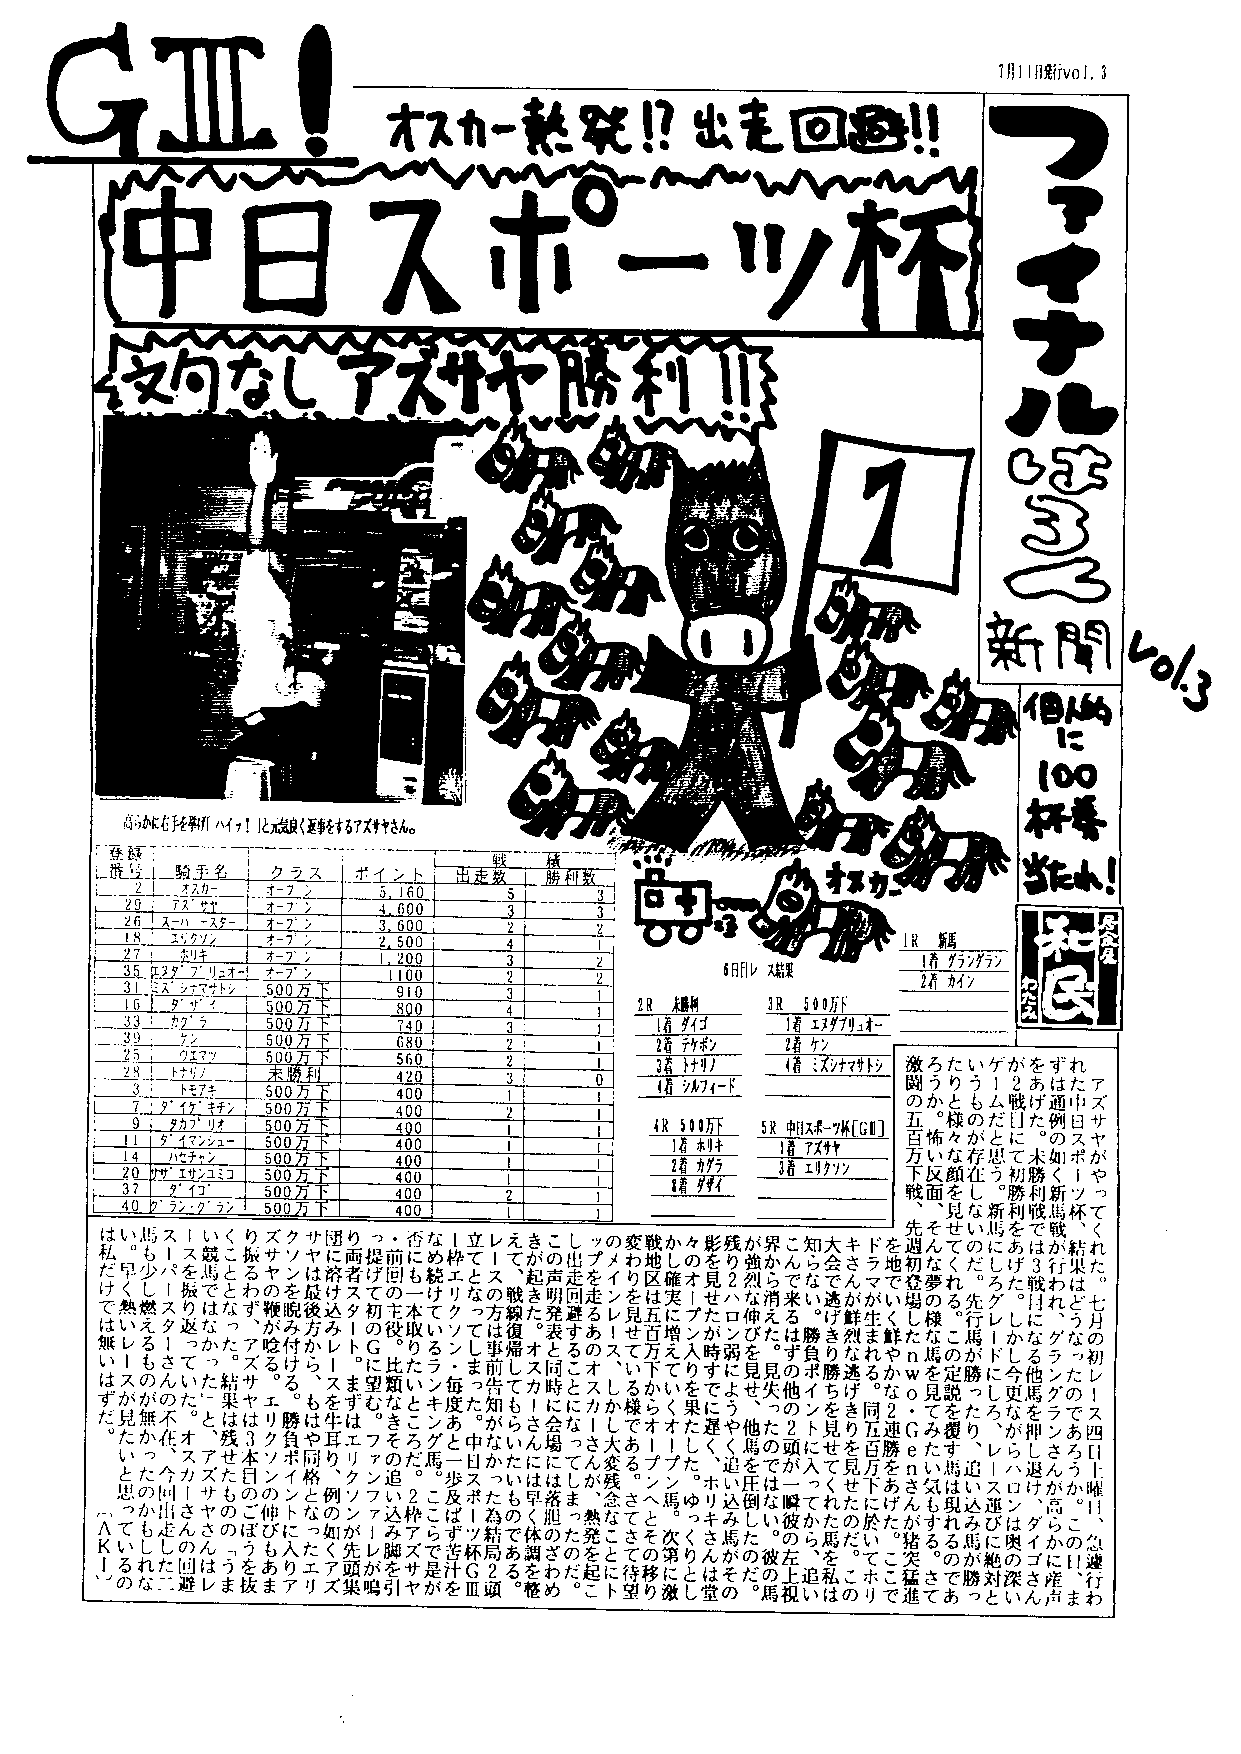 7月11日発行vol. 3
GⅢ!
オスカー熱発!?出走回避!!
中日スポーツ杯
文句なしアズサヤ勝利!!
ファイナルはろん
新聞
vol.3
1
個人的
に
100
杯券
当たれ!
居食屋
和民
わたみ
高らかに右手を挙げ「ハイッ!」と元気良く返事をするアズサヤさん。
オスカー
登録番号 騎手名 クラス ポイント 戦績 出走数 勝利数
2 オスカー オープン 5,160 5 3
29 アズサヤ オープン 4,600 3 3
26 スーパースター オープン 3,600 2 2
18 エリクソン オープン 2,500 4 1
27 ホリキ オープン 1,200 3 2
35 エヌダブリュオー オープン 1100 2 2
31 ミズシナマサトシ 500万下 910 3 1
16 ダザイ 500万下 800 4 1
33 カグラ 500万下 740 3 1
39 ケン 500万下 680 2 1
25 ウエマツ 500万下 560 2 1
28 トナリノ 未勝利 420 3 0
3 トモアキ 500万下 400 1 1
7 ダイゲキチン 500万下 400 2 1
9 タカブリオ 500万下 400 1 1
11 ダイマンシュー 500万下 400 1 1
14 ハセチャン 500万下 400 1 1
20 サザエサンユミコ 500万下 400 1 1
37 ダイゴ 500万下 400 2 1
40 グラン・グラン 500万下 400 1 1
6日目レース結果
1R 新馬
1着 グラングラン
2着 カイン
2R 未勝利
1着 ダイゴ
2着 テケポン
3着 トナリノ
4着 シルフィード
3R 500万下
1着 エヌダブリュオー
2着 ケン
4着 ミズシナマサトシ
4R 500万下
1着 ホリキ
2着 カグラ
3着 ダザイ
5R 中日スポーツ杯[GⅢ]
1着 アズサヤ
3着 エリクソン
アズサヤがやってくれた。七月の初レース四日土曜日、急遽行わ
れた中日スポーツ杯、結果はどうなったのであろうか。この日、ま
ずは通例の如く新馬戦が行われ、グラングランさんが高らかに産声
をあげた。未勝利戦では3戦目になる他馬を押し退け、ダイゴさん
が2戦目にて初勝利をあげた。しかし今更ながらハロンは奥の深い
ゲームだと思う。新馬にしろグレードにしろ、レース運びに絶対と
いうものが存在しないのだ。先行馬が勝ったり、追い込み馬が勝っ
たりと様々な顔を見せてくれる。この定説を覆す馬は現れるのであ
ろうか。怖い反面、そんな夢の様な馬を見てみたい気もする。さて
激闘の五百万下戦、先週初登場したnwo・Genさんが猪突猛進
を地でいく鮮やかな2連勝をあげた。ここで
ドラマが生まれる。同五百万下に於いてホリ
キさんが鮮烈な逃げきりを見せたのだ。この
大会で逃げきり勝ちを見せてくれた馬を私は
知らない。勝負ポイントに入ってから、追い
こんで来るはずの他の2頭が一瞬彼の左上視
界から消えた。見失ったのではない。彼の馬
が強烈な伸びを見せ、他馬を圧倒したのだ。
残り2ハロン弱にようやく追い込み馬がその
影を見せたが時すでに遅く、ホリキさんは堂
々のオープン入りを果たした。ゆっくりとし
かし確実に増えていくオープン馬。次第に激
戦地区は五百万下からオープンへとその移り
変わりを見せている様である。さてさて待望
のメインレース、しかし大変残念なことにト
ップを走るあのオスカーさんが、熱発を起こ
し出走回避することになってしまったのだ。
この声明発表と同時に会場には落胆のざわめ
きが起きた。オスカーさんには早く体調を整
えて、戦線復帰してもらいたいものである。
レースの方は事前告知がなかった為結局2頭
立てとなってしまった。中日スポーツ杯GⅢ
ー枠エリクソン・毎度あと一歩及ばず苦汁を
なめ続けているランキング馬。ここらで是が
否にも一本取りたいところだ。2枠アズサヤ
・前回の主役。比類なきその追い込み脚を引
っ提げて初のGに望む。ファンファーレが鳴
り両者スタート。まずはエリクソンが先頭集
団に溶け込みレースを牛耳り、例の如くアズ
サヤは最後方から、もはや同格となったエリ
クソンを睨み付ける。勝負ポイントに入りア
ズサヤの鞭が唸る。エリクソンの伸びもあま
り振るわず、アズサヤは3本目のごぼうを抜
くこととなった。結果は残せたものの「うま
い競馬ではなかった」と、アズサヤさんはレ
ースを振り返っていた。オスカーさんの回避
スーパースターさんの不在、今回出走した二
馬も少し燃えるものが無かったのかもしれな
い。早く熱いレースが見たいと思っているの
は私だけでは無いはずだ。
[AKI]